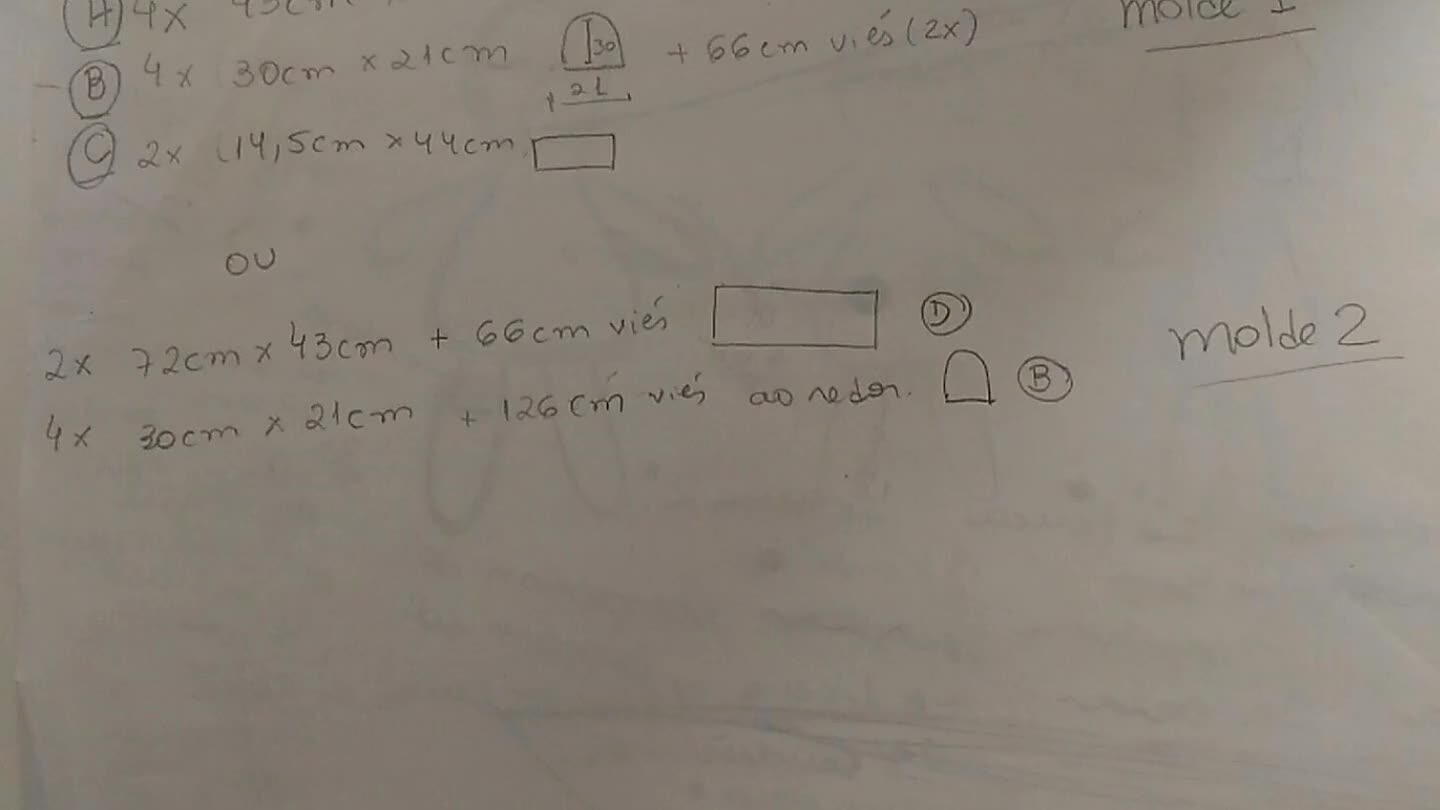 A 4x
molde 1
B 4x 30cm x 21cm 30 + 66cm viés (2x)
21
C 2x 14,5cm x 44cm
ou
2x 72cm x 43cm + 66cm viés D
molde 2
4x 30cm x 21cm + 126cm viés ao redor. B